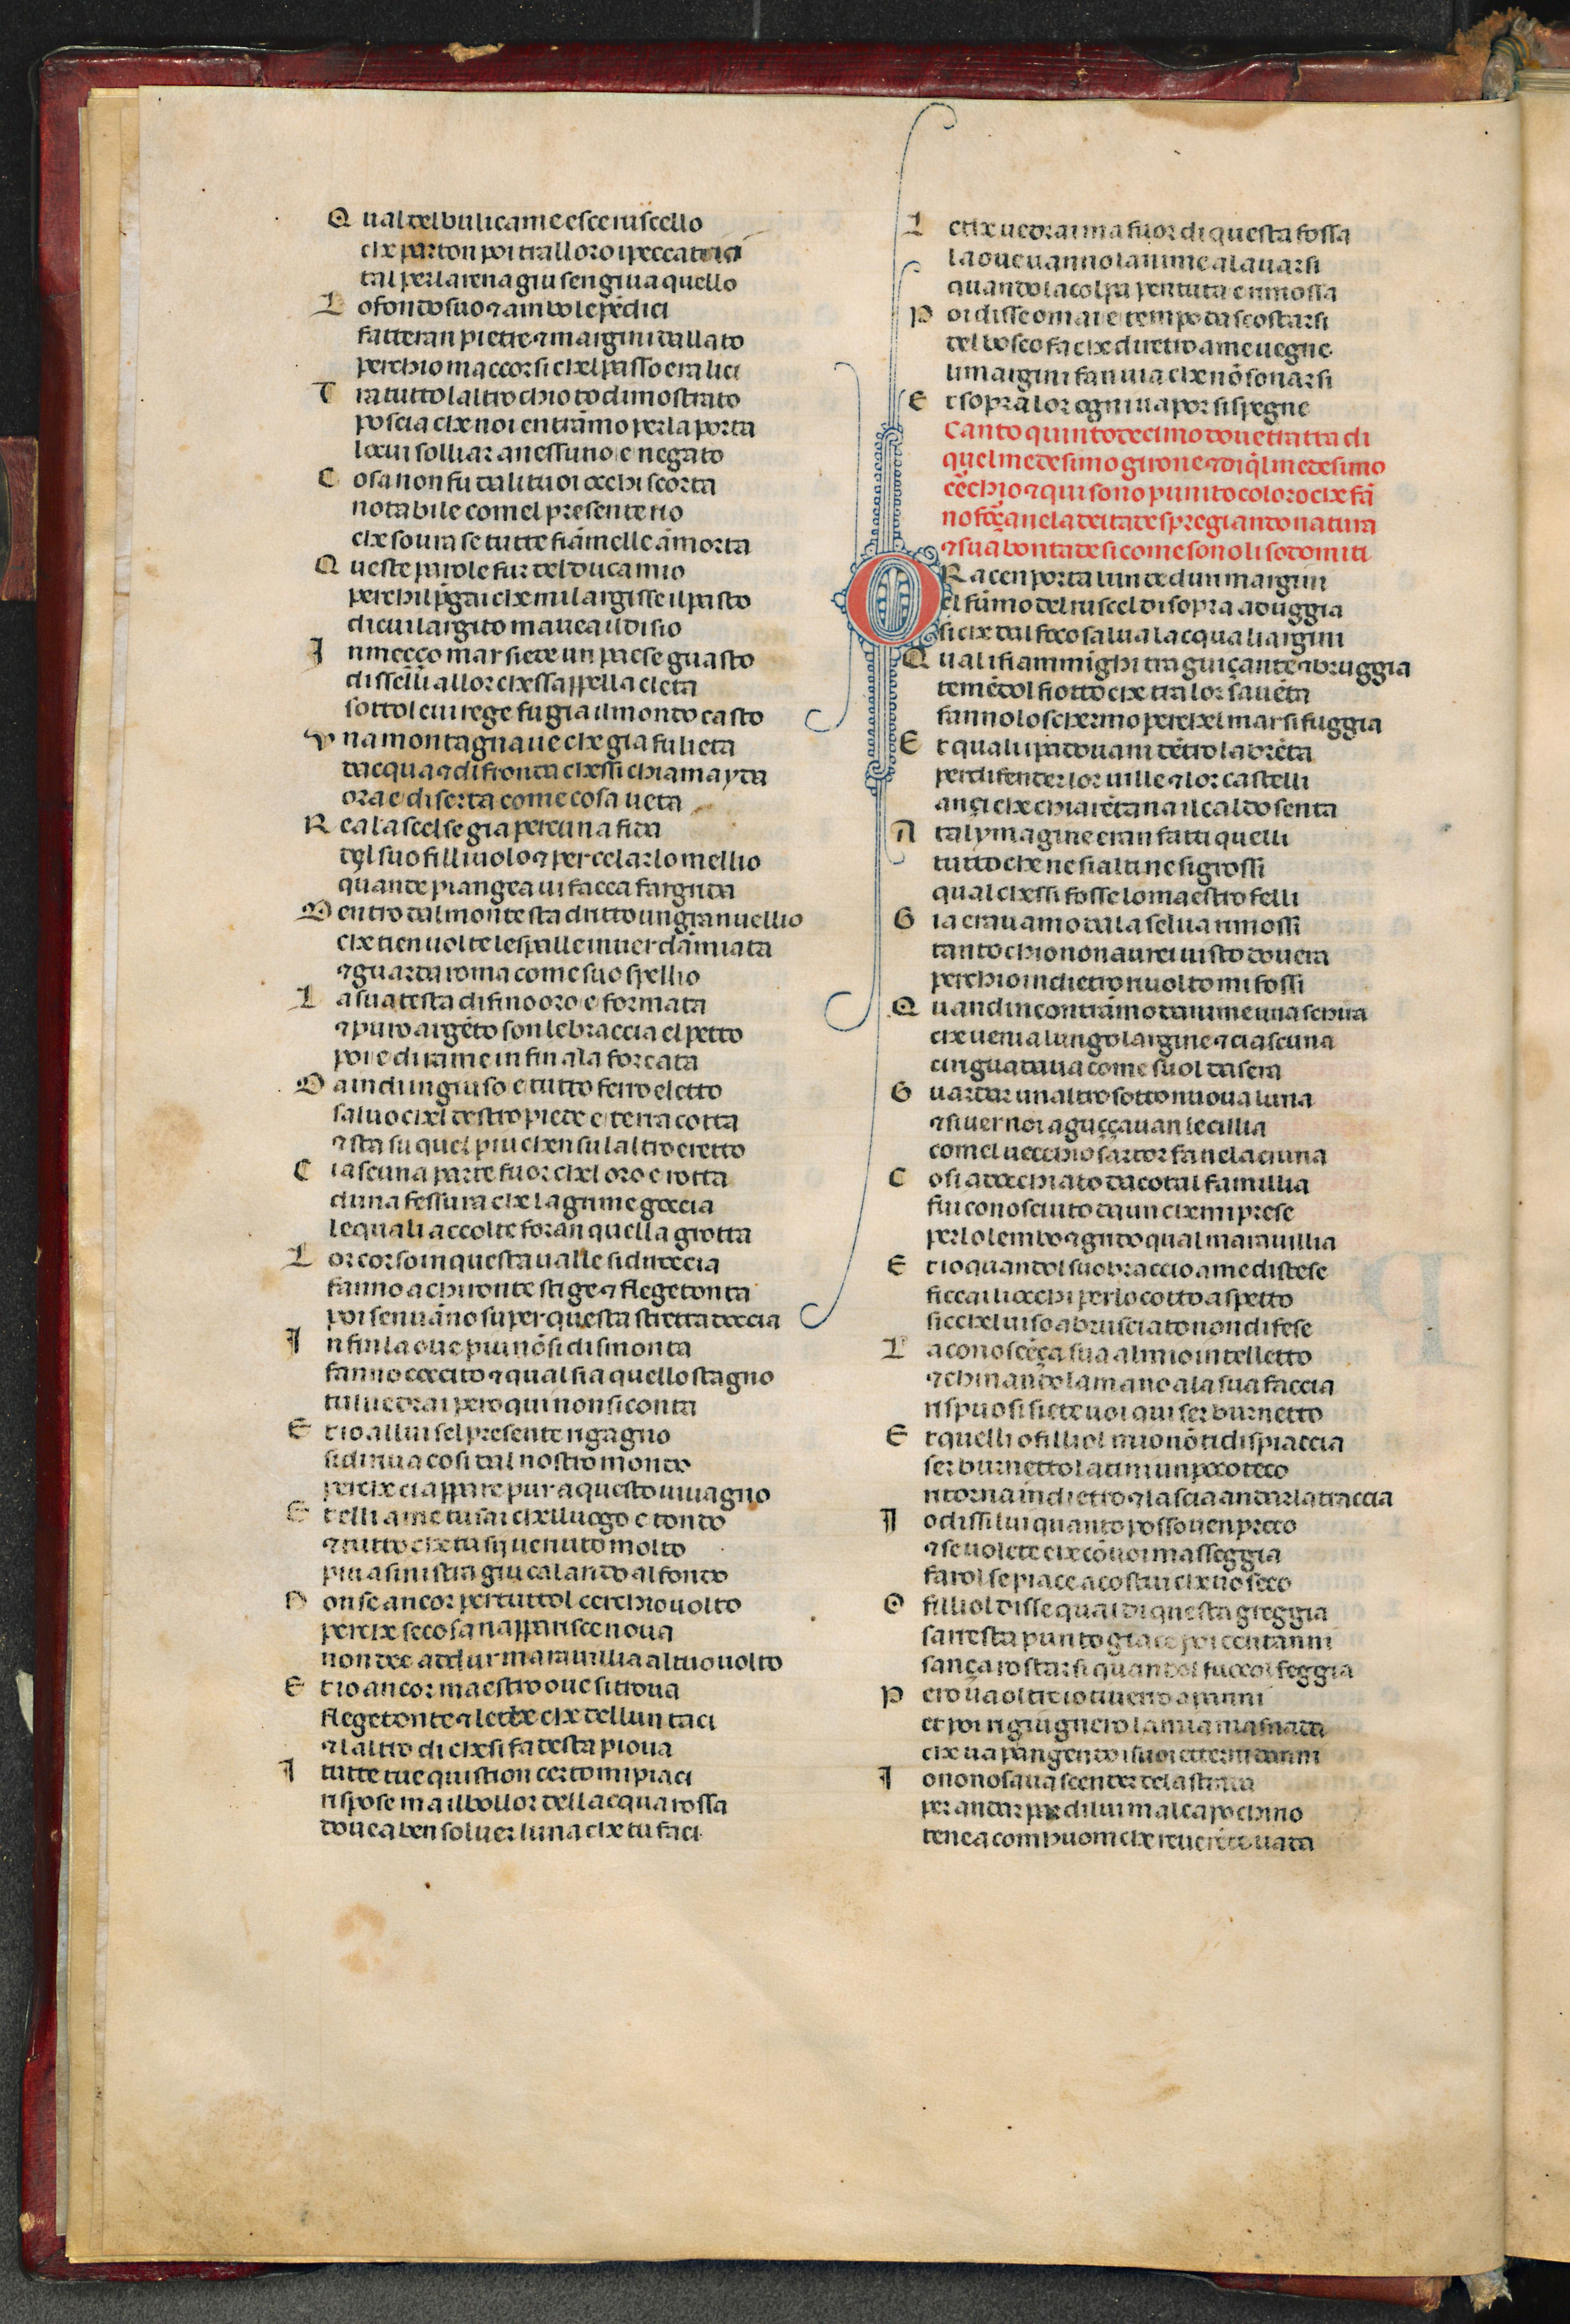 Qual del bulicame esce ruscello
che parton poi tralloro i peccatrici
tal per larena giu sen giua quello
Lo fondo suo ⁊ ambo le pẽdici
fatteran pietre ⁊ margini dallato
perchio maccorsi chel passo era lici
Tra tutto laltro chio to dimostrato
poscia che noi entrãmo per la porta
lo cui solliar a nessuno e negato
Cosa non fu dalituoi occhi scorta
notabile comel presente rio
che soura se tutte fiãmelle ãmorta
Queste parole fur del duca mio
perchil pgai che mi largisse il pasto
di cui largito maueail disio
In meçço mar siede un paese guasto
disselli allor chessappella creta
sottol cui rege fu gia il mondo casto
Vna montagna ue che gia fu lieta
dacqua ⁊ di fronda chessi chiama yda
ora e diserta come cosa ueta
Rea la scelse gia per cuna fida
del suo filliuolo ⁊ per celarlo mellio
quande piangea ui facea far grida
Dentro dal monte sta dritto un gran uellio
che tien uolte le spalle inuer dãmiata
⁊ guarda roma come suo spellio
La sua testa di fino oro e formata
⁊ puro argẽto son le braccia el petto
poi e di rame in fin a la forcata
Da indi in giuso e tutto ferro eletto
saluo chel destro piede e terra cotta
⁊ sta su quel piu chen sul altro eretto
Ciascuna parte fuor che loro e rotta
duna fessura che lagrime goccia
le quali accolte foran quella grotta
Lor corso in questa ualle si diroccia
fanno achironte stige ⁊ flegetonta
poi sen uãno su per questa stretta doccia
In fin la oue piu nõ si dismonta
fanno cocito ⁊ qual sia quello stagno
tu lo uedrai pero qui non si conta
Et io allui sel presente rigagno
si diriua cosi dal nostro mondo
perche ci appare pur a questo uiuagno
Et elli a me tu sai chelluogo e tondo
⁊ tutto che tu sy uenuto molto
piu a sinistra giu calando al fondo
Non se ancor per tuttol cerchio uolto
perche se cosa napparisce noua
non dee addur marauillia al tuo uolto
Et io ancor maestro oue si troua
flegetonte ⁊ lethe che dellun taci
⁊ laltro di che si fa desta pioua
In tutte tue quistion certo mi piaci
rispose ma il bollor dellacqua rossa
douea ben soluer luna che tu faci
Lethe uedrai ma fuor di questa fossa
la oue uanno lanime a lauarsi
quando la colpa pentuta e rimossa
Poi disse omai e tempo da scostarsi
del bosco fa che diretro a me uegne
li margini fan uia che nõ son arsi
Et sopra lor ogni uapor si spegne
Canto quintodecimo doue tratta di
quel medesimo girone ⁊ di q̃l medesimo
cẽchio ⁊ qui sono punito coloro che fã
no foẽça ne la deitade spregiando natura
⁊ sua bontade si come sono li sodomiti
ORa cen porta lun de duri margini
el fũmo del ruscel di sopra aduggia
si che dal foco salua lacqua li argini
Quali fiamminghi tra guiçante ⁊ bruggia
temẽdol fiotto che tra lor sauẽta
fanno lo schermo perchel mar si fuggia
Et quali padouani dẽtro la brẽta
per difender lor uille ⁊ lor castelli
ançi che chiarẽtana il caldo senta
A tal ymagine eran fatti quelli
tutto che ne si alti ne si grossi
qual chessi fosse lo maestro felli
Gia erauamo da la selua rimossi
tanto chio non aurei uisto douera
perchio indietro riuolto mi fossi
Quandincontrãmo danime una schiera
che uenia lungo largine ⁊ ciascuna
ci riguardaua come suol da sera
Guardar un altro sotto nuoua luna
⁊ si uer noi aguççauan le cillia
comel uecchio sartor fa nela cruna
Cosi adocchiato da cotal famillia
fui conosciuto da un che mi prese
per lo lembo ⁊ grido qual marauillia
Et io quandol suo braccio a me distese
ficcai li occhi per lo cotto aspetto
si chel uiso abrusciato non difese
La conoscẽça sua al mio intelletto
⁊ chinando la mano a la sua faccia
rispuosi siete uoi qui ser burnetto
Et quelli o filliol mio nõ ti dispiaccia
ser burnetto latini un poco teco
ritorna indietro ⁊ lascia andar la traccia
Io dissi lui quanto posso uen preco
⁊ se uolete che cõ uoi masseggia
farol se piace a costui che uo seco
O filliol disse qual di questa greggia
sarresta punto giace poi centanni
sança rostarsi quandol fuocol feggia
Pero ua oltre io ti uerro a panni
et poi rigiugnero la mia masnada
che ua piangendo i suoi etterni danni
Io non osaua scender dela strada
per andar par di lui mal capo chino
tenea comhuom che reuerẽte uada